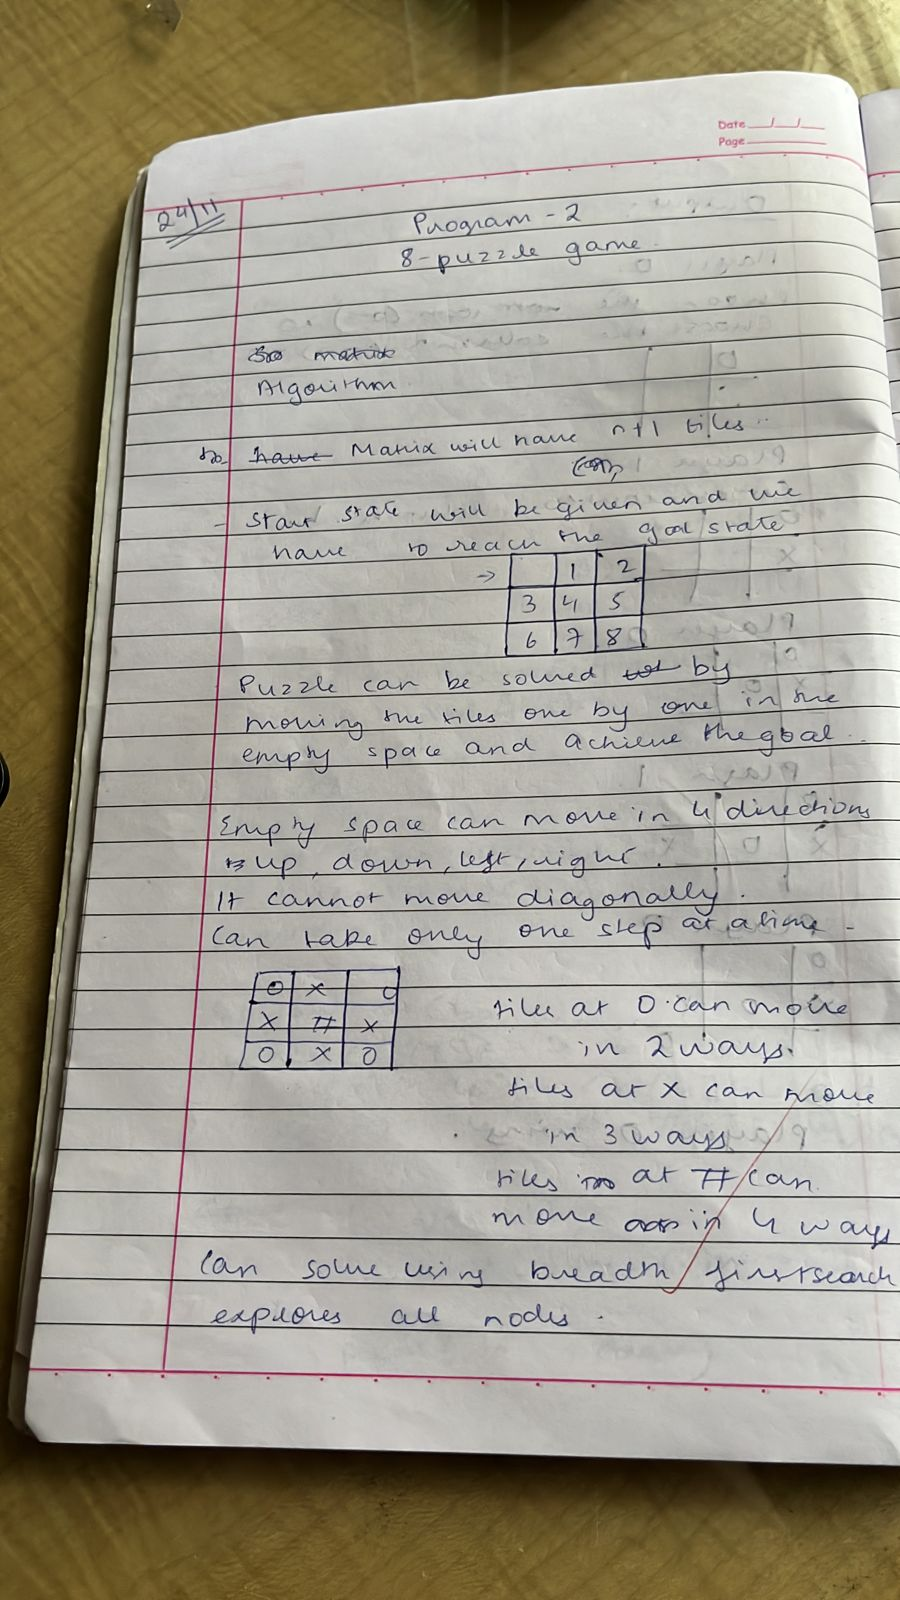 Date / /
Page
24/11
Program - 2
8-puzzle game.
Algorithm
Matrix will have n+1 tiles..
- Start state will be given and we
have to reach the goal state
→ 1 2
3 4 5
6 7 8
Puzzle can be solved by
moving the tiles one by one in the
empty space and achieve the goal..
Empty space can move in 4 directions
up, down, left, right.
It cannot move diagonally.
Can take only one step at a time -
O x O
x # x
O x O
tiles at O can move
in 2 ways.
tiles at x can move
in 3 ways
tiles at # can
move in 4 ways
Can solve using breadth first search
explores all nodes.